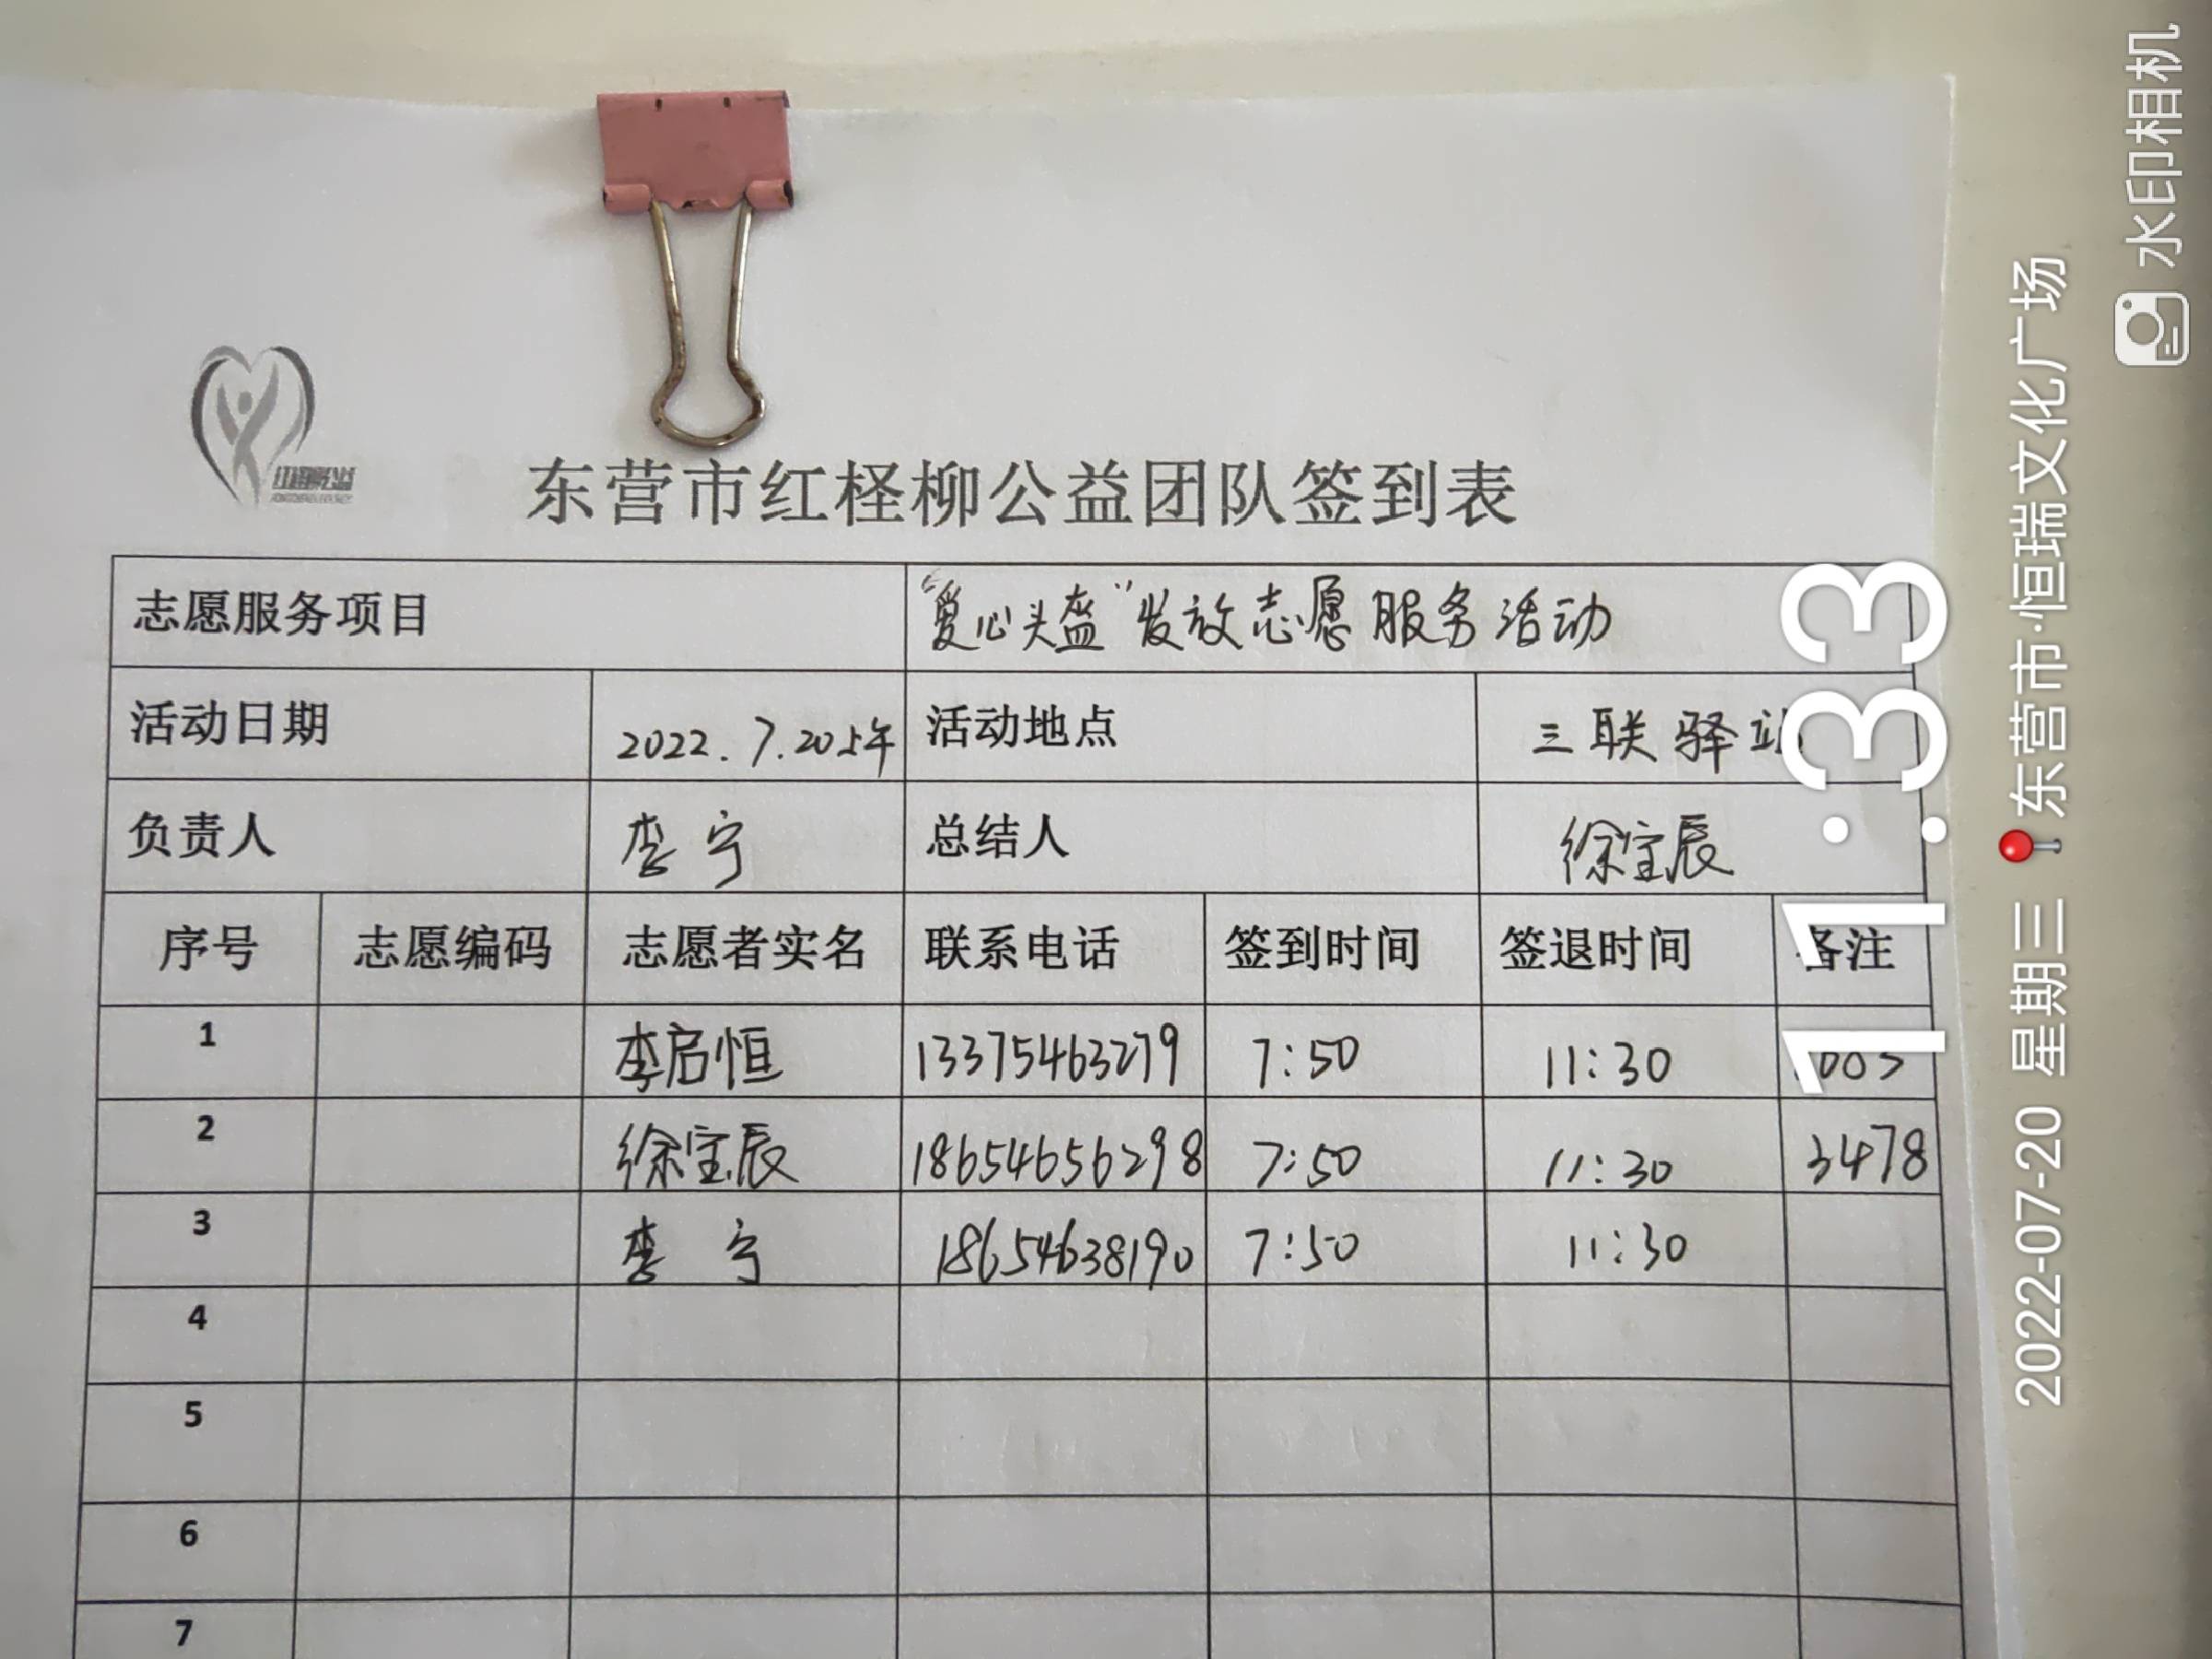 东营市红柽柳公益团队签到表
志愿服务项目 "爱心头盔"发放志愿服务活动
活动日期 2022.7.20上午 活动地点 三联驿站
负责人 李宁 总结人 徐宝辰
序号 志愿编码 志愿者实名 联系电话 签到时间 签退时间 备注
1 李启恒 13375463279 7:50 11:30
2 徐宝辰 18654656298 7:50 11:30 3478
3 李宁 18654638190 7:50 11:30
4
5
6
7
11:33
2022-07-20 星期三 东营市·恒瑞文化广场
水印相机